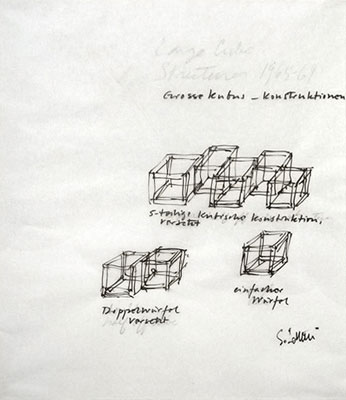 Large Cube
Structures 1965-69
Grosse Kubus - Konstruktionen
5-teilige kubische Konstruktion,
versetzt
einfacher
Würfel
Doppelwürfel
versetzt